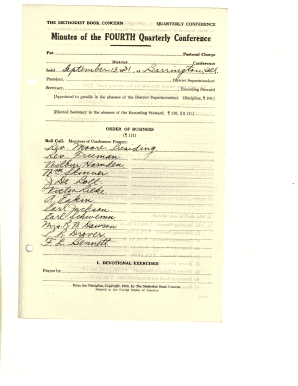 THE METHODIST BOOK CONCERN QUARTERLY CONFERENCE
Minutes of the FOURTH Quarterly Conference
For Pastoral Charge
District Conference
held September 13, 31, at Barrington, Ill.
President, District Superintendent
Secretary, Recording Steward
(Appointed to preside in the absence of the District Superintendent) (Discipline, ¶
(Elected Secretary in the absence of the Recording Steward
ORDER OF BUSINESS
(¶ 111)
Roll Call. Members of Conference Present:
Geo Moore Presiding
Geo Freeman
Wilbur Harnden
Wm Skinner
J De Bolt
Victor Rieke
A Eakin
Carl Nelson
Earl Schwemm
Mrs R B Dawson
P R Drover
F L Bennett
1. DEVOTIONAL EXERCISES
Prayer by
From the Discipline, Copyright, by The Methodist Book Concern
Printed in the United States of America